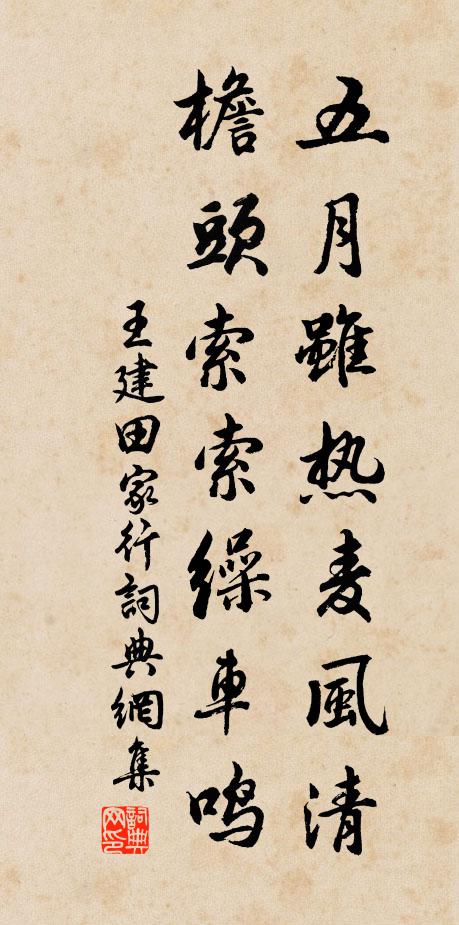 五月雖热麦風清
檐頭索索繰車鳴
王建田家行詞典網集
詞典网印